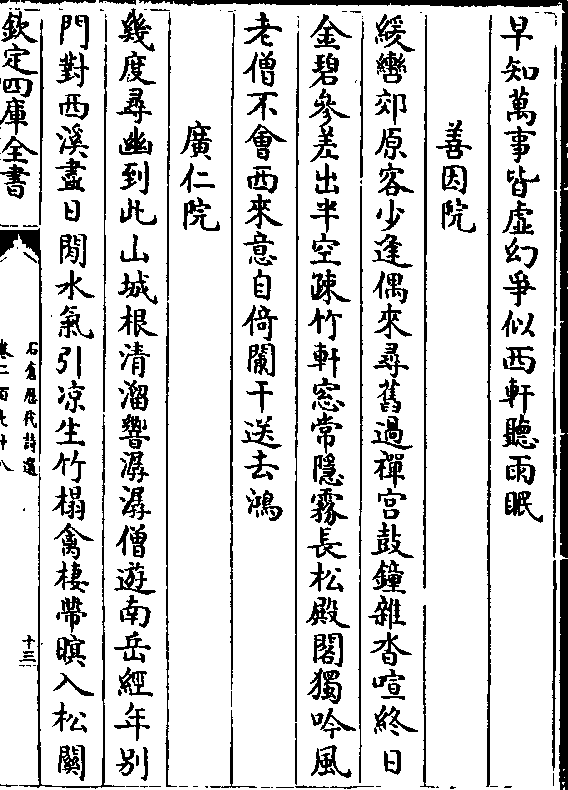 早知萬事皆虛幻爭似西軒聽雨眠
善因院
緩轡郊原客少逢偶來尋舊過禪宫鼓鐘雜沓喧終日
金碧參差出半空疎竹軒窓常隱霧長松殿閣獨吟風
老僧不會西來意自倚闌干送去鴻
廣仁院
幾度尋幽到此山城根清溜響潺潺僧遊南岳經年别
門對西溪盡日閒水氣引凉生竹榻禽棲帶暝入松關
欽定四庫全書
石倉歴代詩選
卷二百九十八
十三